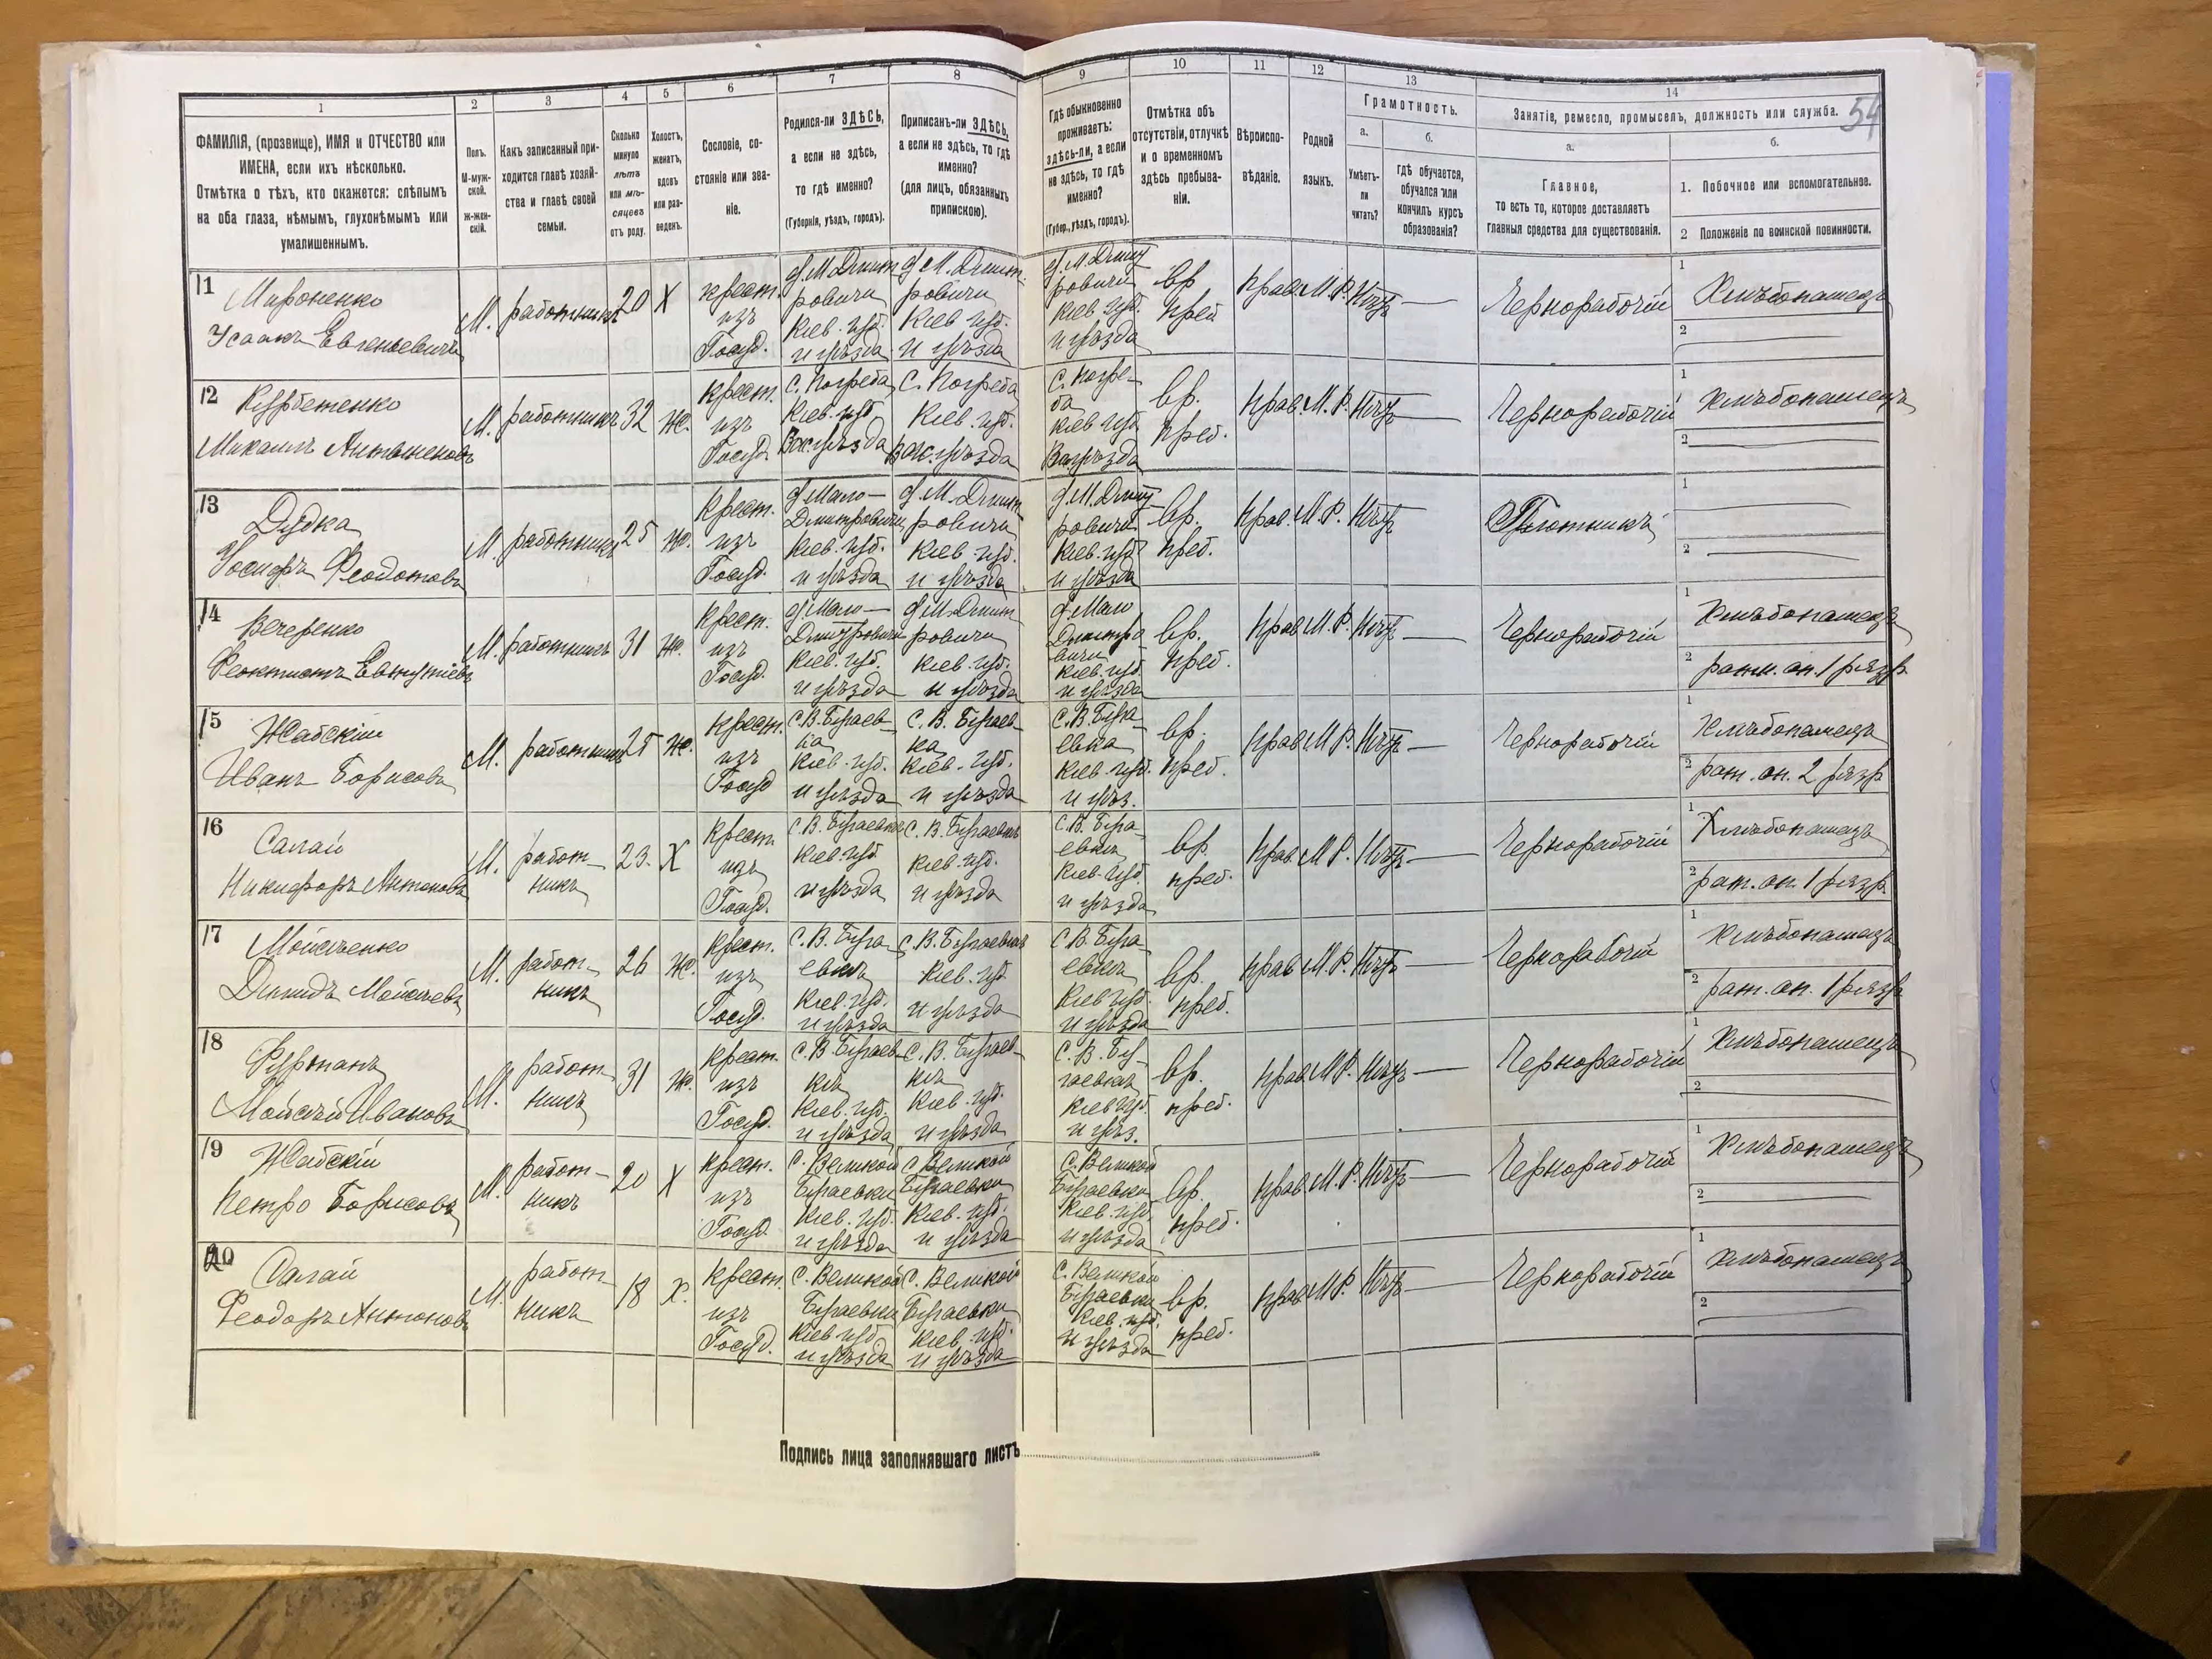 1
2
3
4
5
6
7
8
9
10
11
12
13
14
54
ФАМИЛІЯ, (прозвище), ИМЯ и ОТЧЕСТВО или
ИМЕНА, если ихъ нѣсколько.
Отмѣтка о тѣхъ, кто окажется: слѣпымъ
на оба глаза, нѣмымъ, глухонѣмымъ или
умалишеннымъ.
Полъ.
М-муж-
ской.
Ж-жен-
скій.
Какъ записанный при-
ходится главѣ хозяй-
ства и главѣ своей
семьи.
Сколько
минуло
лѣтъ
или мѣ-
сяцевъ
отъ роду.
Холостъ,
женатъ,
вдовъ
или раз-
веденъ.
Сословіе, со-
стояніе или зва-
ніе.
Родился-ли ЗДѢСЬ,
а если не здѣсь,
то гдѣ именно?
(Губернія, уѣздъ, городъ).
Приписанъ-ли ЗДѢСЬ,
а если не здѣсь, то гдѣ
именно?
(для лицъ, обязанныхъ
припискою).
Гдѣ обыкновенно
проживаетъ:
здѣсь-ли, а если
не здѣсь, то гдѣ
именно?
(Губер., уѣздъ, городъ).
Отмѣтка объ
отсутствіи, отлучкѣ
и о временномъ
здѣсь пребыва-
ніи.
Вѣроиспо-
вѣданіе.
Родной
языкъ.
Грамотность.
а.
Умѣетъ-
ли
читать?
б.
гдѣ обучается,
обучался или
кончилъ курсъ
образованія?
Занятіе, ремесло, промыселъ, должность или служба.
а.
Главное,
то есть то, которое доставляетъ
главныя средства для существованія.
б.
1. Побочное или вспомогательное.
2 Положеніе по воинской повинности.
11
Мироненко
Исаакъ Евгеньевичъ
М.
работникъ
20
Х
крест.
изъ
Госуд.
д. М. Дмит
ровичи
Кіев. губ.
и уѣзда
д. М. Дмит.
ровичи
Кіев губ.
и уѣзда
д. М. Дмит
ровичи
Кіев губ.
и уѣзда
вр
преб
прав.
М.Р.
Нѣтъ —
Чернорабочій
1
Хлѣбопашецъ
2
12
Курбетенко
Михаилъ
М.
работникъ
32
Ж.
крест.
изъ
Госуд
С. Погреба
Кіев. губ
Вас. уѣзда
С. Погреба
Кіев. губ.
Вас. уѣзда
С. Погре-
ба
Кіев губ
Вас уѣзда
вр.
преб.
Прав.
М. Р.
Нѣтъ —
Чернорабочій
1
Хлѣбопашецъ
2
13
Дудка
Іосифъ Феодотовъ
М.
работникъ
25
Ж.
крест.
изъ
Госуд.
д Мало-
Дмитровичи
Кіев. губ.
и уѣзда
д. М. Дмит
ровичи
Кіев. губ.
и уѣзда
д. М. Дмит
ровичи
Кіев. губ
и уѣзда
вр.
преб.
Прав.
М. Р.
Нѣтъ
Плотникъ
1
2
14
Вечеренко
Феоктистъ Евтухіевъ
М.
работникъ
31
Ж.
крест.
изъ
Госуд.
д Мало-
Дмитровичи
Кіев. губ.
и уѣзда
д М. Дмит
ровичи
Кіев. губ.
и уѣзда
д Мало
Дмитро
вичи
Кіев. губ
и уѣзда
вр.
преб.
Прав
М. Р.
Нѣтъ —
Чернорабочій
1
Хлѣбопашецъ
2
ратн. оп. 1 разр.
15
Жабскій
Иванъ Борисовъ
М.
работникъ
25
Ж.
крест.
изъ
Госуд
С. В. Бугаев-
ка
Кіев. губ.
и уѣзда
С. В. Бугаев-
ка
Кіев. губ.
и уѣзда
С. В. Буга-
евка
Кіев. губ.
и уѣз.
вр.
преб.
Прав
М Р.
Нѣтъ —
Чернорабочій
1
Хлѣбопашецъ
2
рат. оп. 2 разр
16
Салай
Никифоръ Антоновъ
М.
работ-
никъ
23.
Х
крест
изъ
Госуд.
С. В. Бугаевкѣ
Кіев. губ
и уѣзда
С. В. Бугаевкѣ
Кіев. губ.
и уѣзда
С. В. Буга-
евкѣ
Кіев. губ
и уѣзда
вр.
преб.
Прав.
М Р.
Нѣтъ —
Чернорабочій
1
Хлѣбопашецъ
2
рат. оп. 1 разр.
17
Мойсѣенко
Діомидъ Мойсѣевъ
М.
работ-
никъ
26
Ж.
Крест.
изъ
Госуд.
С. В. Буга
евкѣ
Кіев. губ.
и уѣзда
С. В. Бугаевкѣ
Кіев. губ
и уѣзда
С В. Буга-
евкѣ
Кіев губ.
и уѣзда
вр.
преб.
Прав
М. Р.
Нѣтъ —
Чернорабочій
1
Хлѣбопашецъ
2
рат. оп. 1 разр
18
Фурманъ
Мойсѣй Ивановъ
М.
работ
никъ
31
Ж.
крест.
изъ
Госуд.
С. В. Бугаев
кѣ
Кіев. губ.
и уѣзда
С. В. Бугаев-
кѣ
Кіев. губ.
и уѣзда
С. В. Бу-
гаевкѣ
Кіев губ.
и уѣз.
вр.
преб.
Прав.
М Р.
Нѣтъ —
Чернорабочій
1
Хлѣбопашецъ
2
19
Жабскій
Петро Борисовъ
М.
работ-
никъ
20
Х
крест.
изъ
Госуд
С. Великой
Бугаевки
Кіев. губ.
и уѣзда
С Великой
Бугаевки
Кіев. губ.
и уѣзда
С. Великой
Бугаевки
Кіев. губ.
и уѣзда
вр.
преб.
Прав
М. Р.
Нѣтъ —
Чернорабочій
1
Хлѣбопашецъ
2
20
Салай
Феодоръ Антоновъ
М.
работ-
никъ
18
Х.
крест.
изъ
Госуд.
С. Великой
Бугаевки
Кіев губ
и уѣзда
С. Великой
Бугаевки
Кіев. губ.
и уѣзда
С. Великой
Бугаевки
Кіев. губ.
и уѣзда
вр.
преб.
Прав
М Р.
Нѣтъ —
Чернорабочій
1
Хлѣбопашецъ
2
Подпись лица заполнявшаго листъ